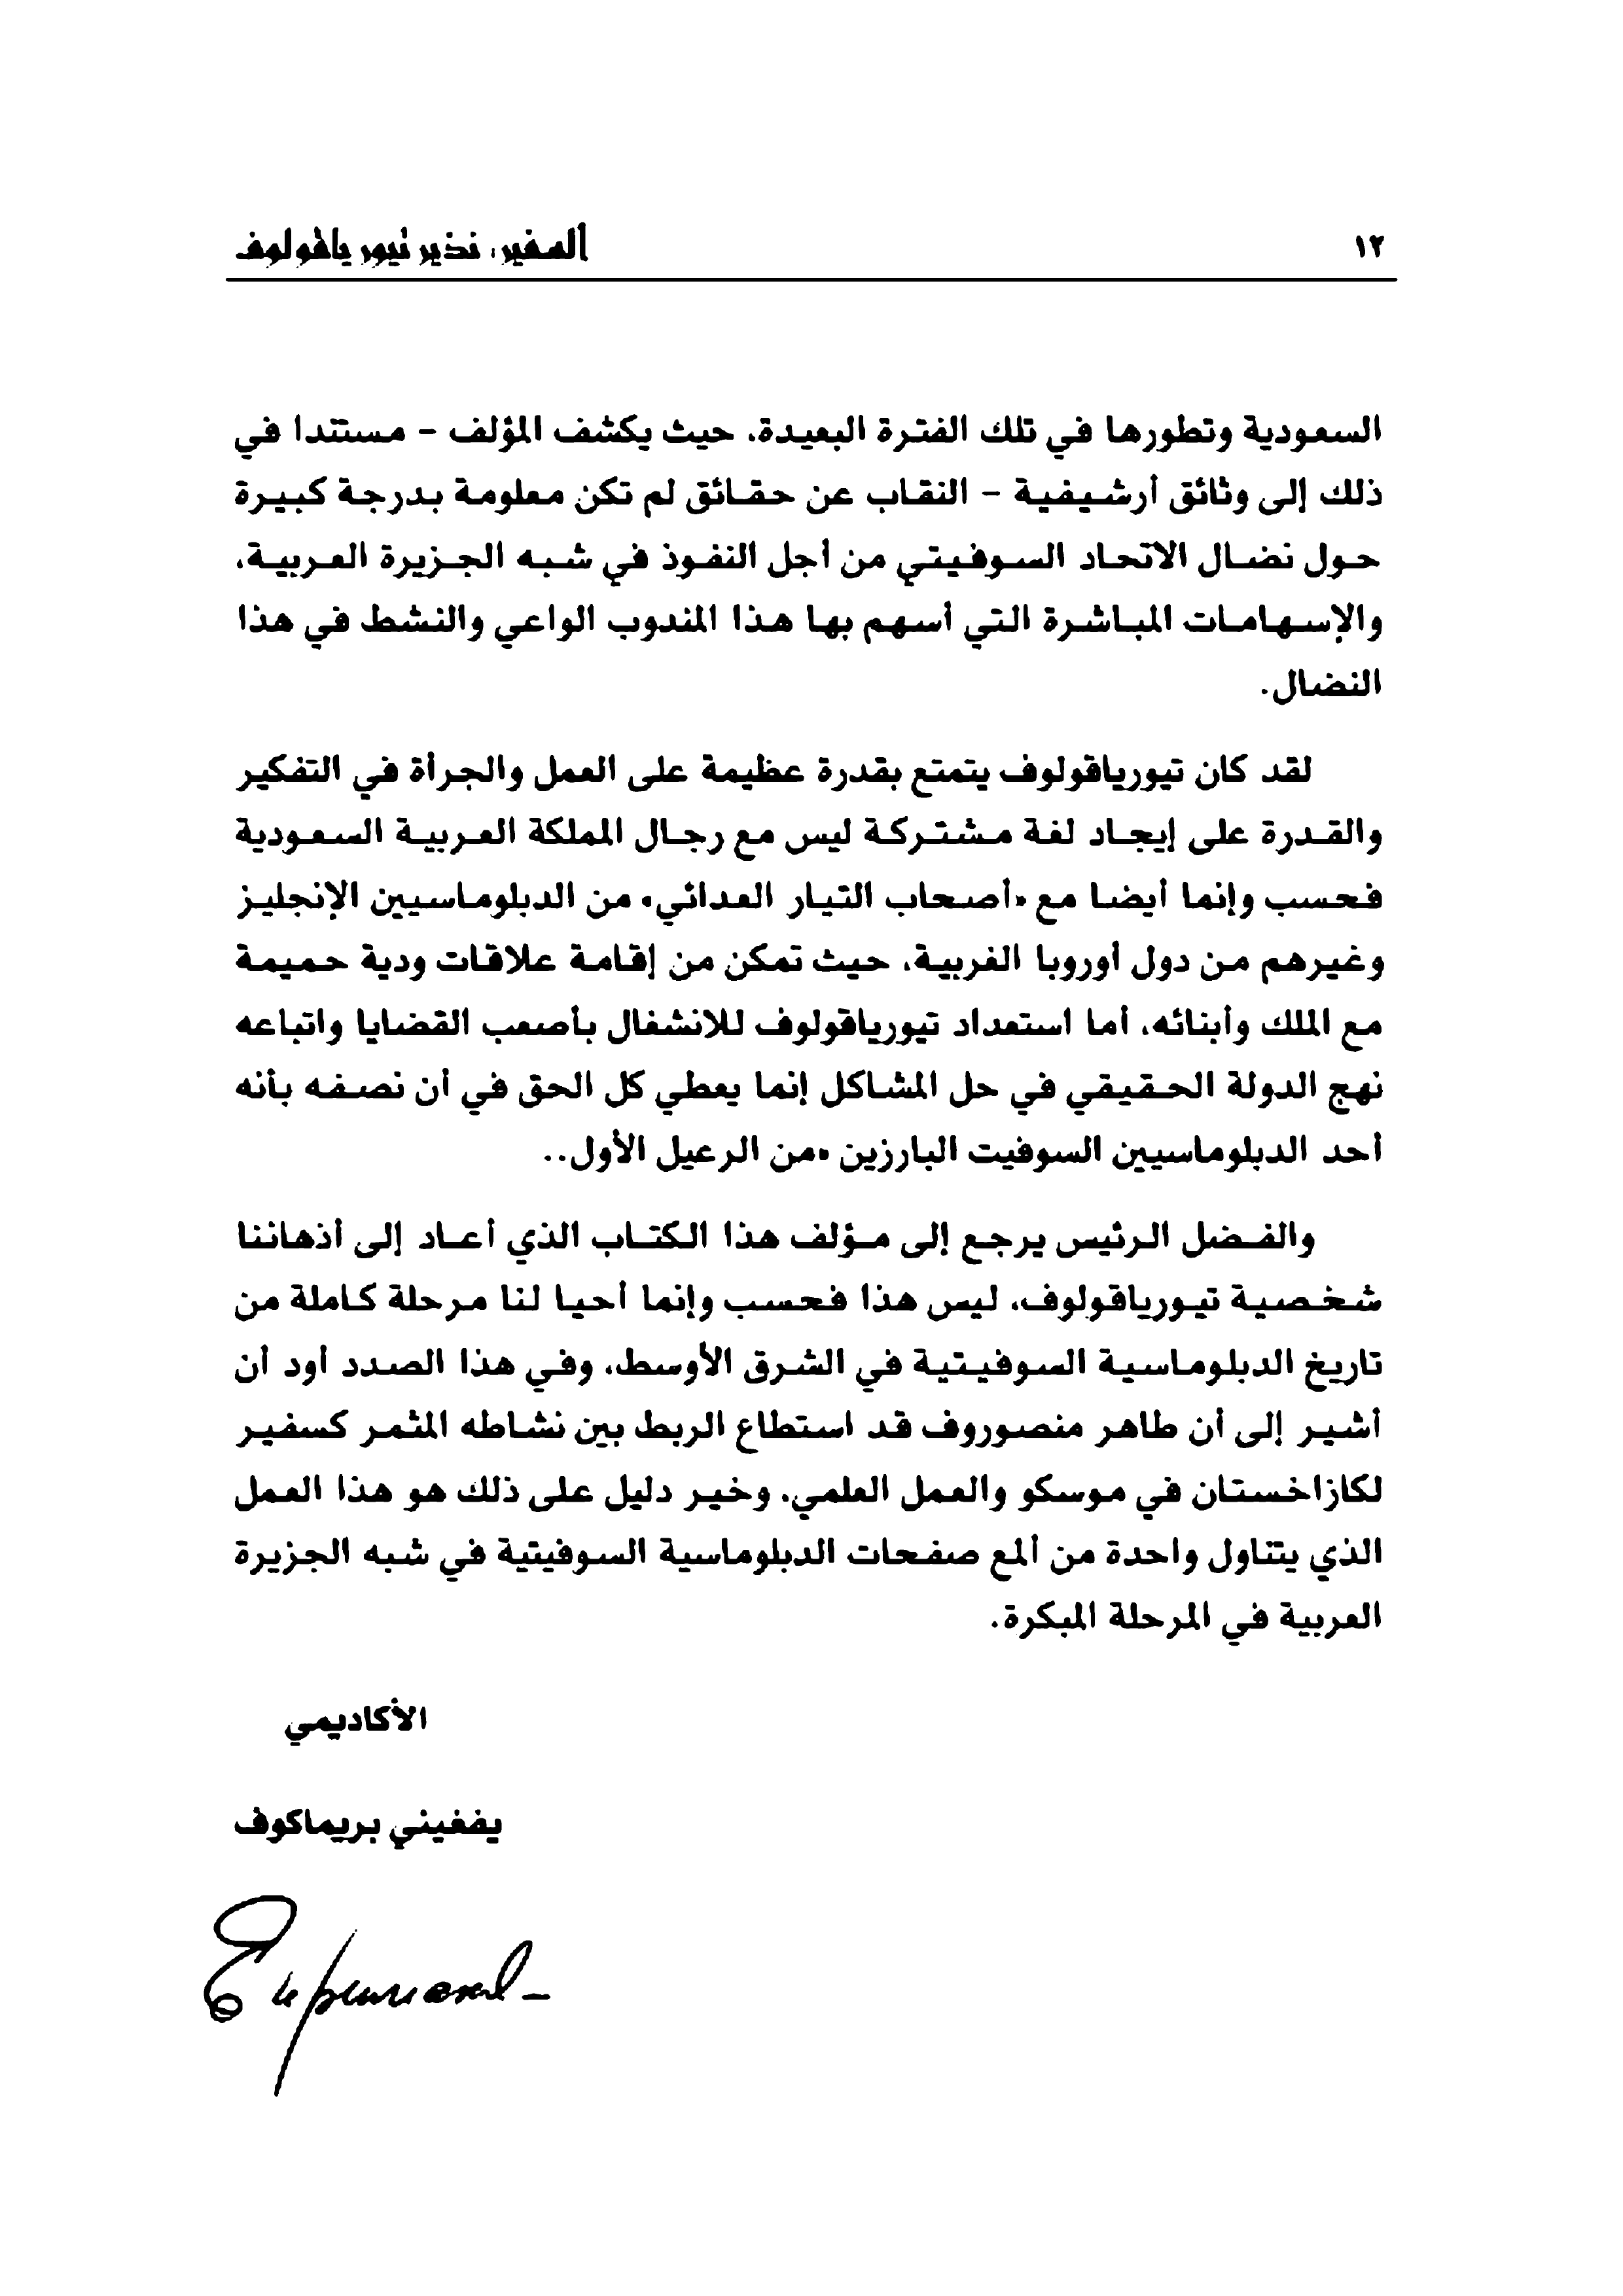 ١٢
السفير، نذير تيورياقولوف
السعودية وتطورها في تلك الفترة البعيدة، حيث يكشف المؤلف – مستندا في
ذلك إلى وثائق أرشيفية – النقاب عن حقائق لم تكن معلومة بدرجة كبيرة
حول نضال الاتحاد السوفيتي من أجل النفوذ في شبه الجزيرة العربية،
والإسهامات المباشرة التي أسهم بها هذا المندوب الواعي والنشط في هذا
النضال.
لقد كان تيورياقولوف يتمتع بقدرة عظيمة على العمل والجرأة في التفكير
والقدرة على إيجاد لغة مشتركة ليس مع رجال المملكة العربية السعودية
فحسب وإنما أيضا مع «أصحاب التيار العدائي» من الدبلوماسيين الإنجليز
وغيرهم من دول أوروبا الغربية، حيث تمكن من إقامة علاقات ودية حميمة
مع الملك وأبنائه، أما استعداد تيورياقولوف للانشغال بأصعب القضايا واتباعه
نهج الدولة الحقيقي في حل المشاكل إنما يعطي كل الحق في أن نصفه بأنه
أحد الدبلوماسيين السوفيت البارزين «من الرعيل الأول..
والفضل الرئيس يرجع إلى مؤلف هذا الكتاب الذي أعاد إلى أذهاننا
شخصية تيورياقولوف، ليس هذا فحسب وإنما أحيا لنا مرحلة كاملة من
تاريخ الدبلوماسية السوفيتية في الشرق الأوسط، وفي هذا الصدد أود أن
أشير إلى أن طاهر منصوروف قد استطاع الربط بين نشاطه المثمر كسفير
لكازاخستان في موسكو والعمل العلمي، وخير دليل على ذلك هو هذا العمل
الذي يتناول واحدة من ألمع صفحات الدبلوماسية السوفيتية في شبه الجزيرة
العربية في المرحلة المبكرة.
الأكاديمي
يفغيني بريماكوف